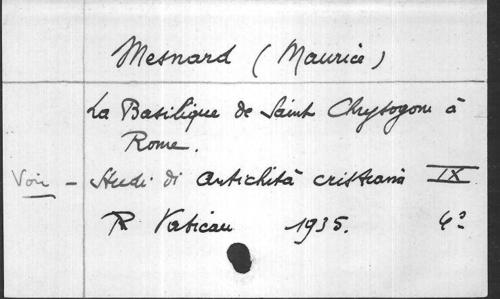 Mesnard (Maurice)
La Basilique de Saint Chrysogone à
Rome.
Voir - Studi di antichità cristiana IX
R Vatican 1935. 4º